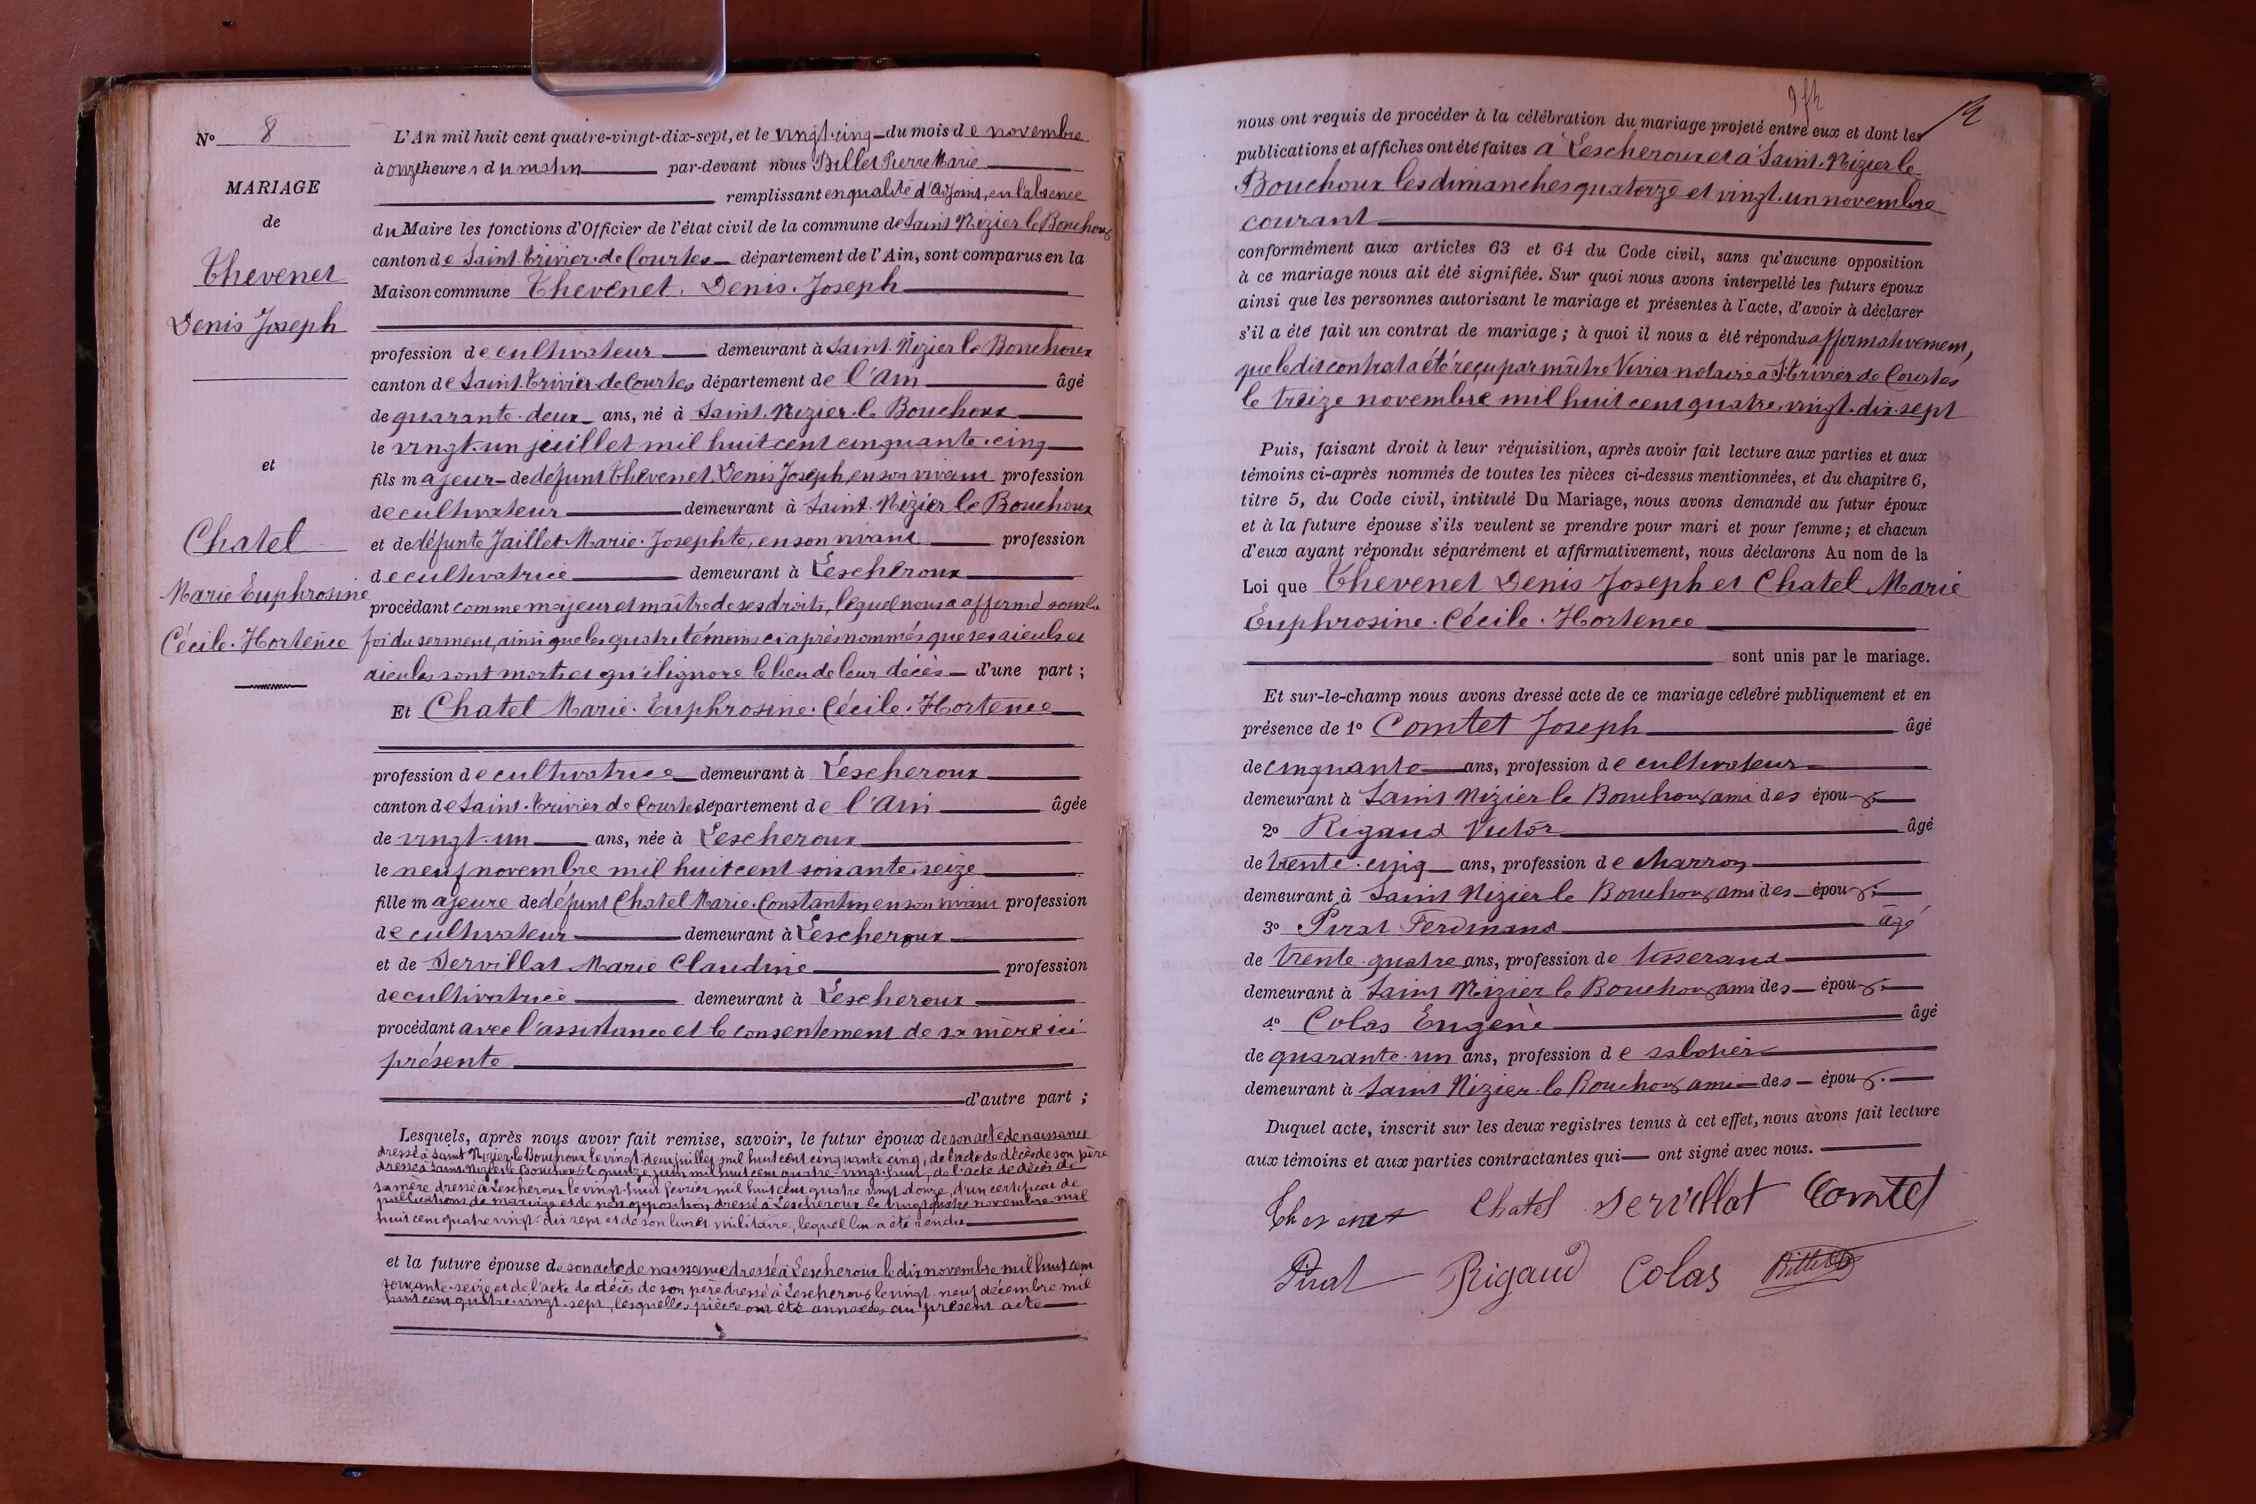 N° 8
MARIAGE
de
Thevenet
Denis Joseph
et
Chatel
Marie Euphrosine
Cécile. Hortence
L'An mil huit cent quatre-vingt-dix-sept, et le vingt-cinq du mois de novembre
à onze heures du matin par-devant nous Billet Pierre Marie
remplissant en qualité d'adjoint, en l'absence
du Maire les fonctions d'Officier de l'état civil de la commune de Saint Nizier le Bouchoux
canton de Saint Trivier de Courtes département de l'Ain, sont comparus en la
Maison commune Thevenet. Denis. Joseph
profession de cultivateur demeurant à Saint Nizier le Bouchoux
canton de Saint. Trivier de Courtes département de l'Ain âgé
de quarante-deux ans, né à Saint. Nizier le Bouchoux
le vingt-un juillet mil huit cent cinquante-cinq
fils majeur de défunt Thevenet Denis Joseph, en son vivant profession
de cultivateur demeurant à Saint Nizier le Bouchoux
et de défunte Jaillet Marie. Josephte, en son vivant profession
de cultivatrice demeurant à Lescheroux
procédant comme majeur et maître de ses droits, lequel nous a affirmé sous la
foi du serment, ainsi que les quatre témoins ci après nommés que ses aieuls et
aieules sont morts et qu'il ignore le lieu de leur décès d'une part ;
Et Chatel Marie. Euphrosine. Cécile. Hortence
profession de cultivatrice demeurant à Lescheroux
canton de Saint. Trivier de Courtes département de l'Ain âgée
de vingt-un ans, née à Lescheroux
le neuf novembre mil huit cent soixante-seize
fille majeure de défunt Chatel Marie. Constantin, en son vivant profession
de cultivateur demeurant à Lescheroux
et de Servillat Marie Claudine profession
de cultivatrice demeurant à Lescheroux
procédant avec l'assistance et le consentement de sa mère ici
présente
d'autre part ;
Lesquels, après nous avoir fait remise, savoir, le futur époux de son acte de naissance
dressé à Saint Nizier le Bouchoux le vingt-deux juillet mil huit cent cinquante cinq, de l'acte de décès de son père
dressé à Saint Nizier le Bouchoux le quinze juin mil huit cent quatre-vingt-huit, de l'acte de décès de
sa mère dressé à Lescheroux le vingt-huit février mil huit cent quatre vingt douze, d'un certificat de
publications de mariage et de non opposition, dressé à Lescheroux le vingt quatre novembre mil
huit cent quatre vingt-dix sept et de son livret militaire, lequel lui a été rendu
et la future épouse de son acte de naissance dressé à Lescheroux le dix novembre mil huit cent
soixante-seize et de l'acte de décès de son père dressé à Lescheroux le vingt-neuf décembre mil
huit cent quatre-vingt-sept, lesquelles pièces ont été annexées au présent acte
nous ont requis de procéder à la célébration du mariage projeté entre eux et dont les
publications et affiches ont été faites à Lescheroux et à Saint. Nizier le
Bouchoux les dimanches quatorze et vingt-un novembre
courant
conformément aux articles 63 et 64 du Code civil, sans qu'aucune opposition
à ce mariage nous ait été signifiée. Sur quoi nous avons interpellé les futurs époux
ainsi que les personnes autorisant le mariage et présentes à l'acte, d'avoir à déclarer
s'il a été fait un contrat de mariage ; à quoi il nous a été répondu affirmativement,
que le dit contrat a été reçu par maître Vivier notaire à St Trivier de Courtes
le treize novembre mil huit cent quatre-vingt-dix-sept
Puis, faisant droit à leur réquisition, après avoir fait lecture aux parties et aux
témoins ci-après nommés de toutes les pièces ci-dessus mentionnées, et du chapitre 6,
titre 5, du Code civil, intitulé Du Mariage, nous avons demandé au futur époux
et à la future épouse s'ils veulent se prendre pour mari et pour femme ; et chacun
d'eux ayant répondu séparément et affirmativement, nous déclarons Au nom de la
Loi que Thevenet Denis Joseph et Chatel Marie
Euphrosine. Cécile. Hortence
sont unis par le mariage.
Et sur-le-champ nous avons dressé acte de ce mariage célébré publiquement et en
présence de 1° Comtet Joseph âgé
de cinquante ans, profession de cultivateur
demeurant à Saint Nizier le Bouchoux ami des époux.
2° Rigaud Victor âgé
de trente-cinq ans, profession de charron
demeurant à Saint Nizier le Bouchoux ami des époux.
3° Pirat Ferdinand âgé
de trente-quatre ans, profession de tisserand
demeurant à Saint Nizier le Bouchoux ami des époux.
4° Colas Eugène âgé
de quarante-un ans, profession de sabotier
demeurant à Saint Nizier le Bouchoux ami des époux.
Duquel acte, inscrit sur les deux registres tenus à cet effet, nous avons fait lecture
aux témoins et aux parties contractantes qui ont signé avec nous.
Thevenet Chatel Servillat Comtet
Pirat Rigaud Colas Billet